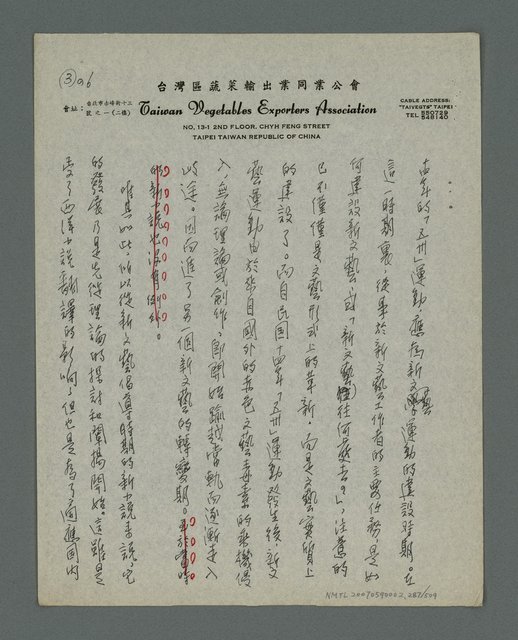 ③ 96
台灣區蔬菜輸出業同業公會
會址：台北市赤峰街十三號之一(二樓)
Taiwan Vegetables Exporters Association
NO, 13-1 2ND FLOOR. CHYH FENG STREET
TAIPEI TAIWAN REPUBLIC OF CHINA
CABLE ADDRESS:
"TAIVEGTS" TAIPEI
TEL 550729
548140
十四年的「五卅」運動，應為新文藝運動的建設時期。在
這一時期裏，從事於新文藝工作者的主要任務是如
何建設新文藝，或「新文藝往何處去？」，注意的
已不僅僅是文藝形式上的革新，而是文藝實質上
的建設了。而自民國十四年「五卅」運動發生後，新文
藝運動由於來自國外的赤色文藝毒素的乘機侵
入，無論理論或創作，即開始踰越常軌而逐漸走入
歧途。因而進了另一個新文藝的轉變期。
的新小說也沒有例外。
唯其如此，所以從新文藝倡導時期的新小說來說，它
的發展乃是先從理論的探討和闡揚開始。這雖是
受了西洋小說翻譯的影響，但也是為了適應國內
NMTL 20070590002, 287/509